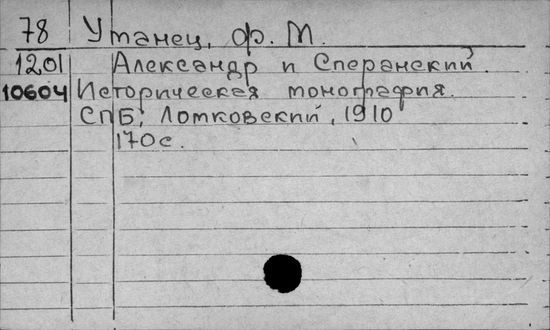 78 Утанец, Ф. М.
1201 Александр и Сперанский.
10604 Историческая монография.
СПБ, Лотковский, 1910
170с.